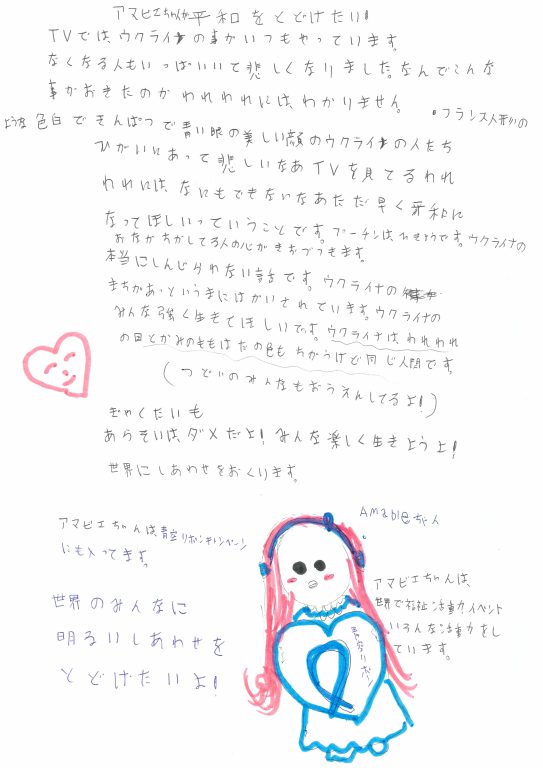 アマビエちゃんが平和をとどけたい!
TVでは、ウクライナの事がいつもやっています。
なくなる人もいっぱいいて悲しくなりました。なんでこんな
事がおきたのか われわれには、わかりません。 •フランス人形の
ような色白できんぱつで青い眼の美しい顔のウクライナの人たち
ひがいにあって悲しいなあTVを見てるわれ
われには、なにもできないなあただ早く平和に
なってほしいっていうことです。プーチンはひきょうです。ウクライナの
おなかすかしてる人の心がきずつきます。
本当にしんじられない話です。ウクライナの
まちがあっというまにはかいされています。ウクライナの
みんな強く生きてほしいです。ウクライナは、われわれ
の国とかみのももはだの色も ちがうけど同じ人間です。
(つどいのみんなもおうえんしてるよ!)
ぎゃくたいも
あらそいは、ダメだよ!みんな楽しく生きようよ!
世界にしあわせをおくります。
アマビエちゃんは、青空リボンキャンペーン
にも入ってます。
世界のみんなに
明るいしあわせを
とどけたいよ!
Amabieちゃん
アマビエちゃんは、
世界で福祉活動イベント
いろんな活動をし
ています。